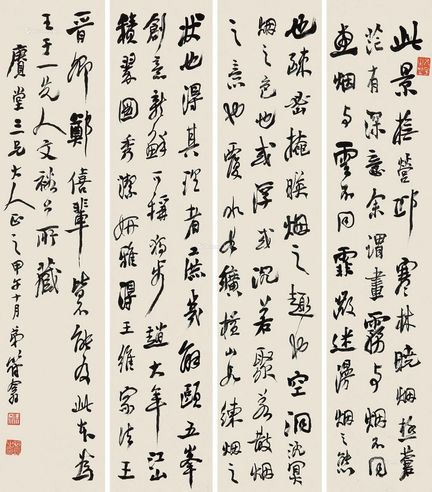 此景營邱寒林曉烟極蒼
茫有深意余謂畫霧与烟不同
畫烟与雲不同霏微迷漫烟之態
也疏密掩映烟之趣也空洞沈冥
烟之色也或浮或沉若聚若散烟
之意也覆水如纊横山如練烟之
狀也得其理者庶幾解頤五峯
創意新鮮可稱獨步趙大年江山
積翠圖秀潔妍雅得王維家法王
晋卿鄭僖輩皆不能及此本為
王于一先人文裕公所藏
賡堂三兄大人正之甲午十月弟翁